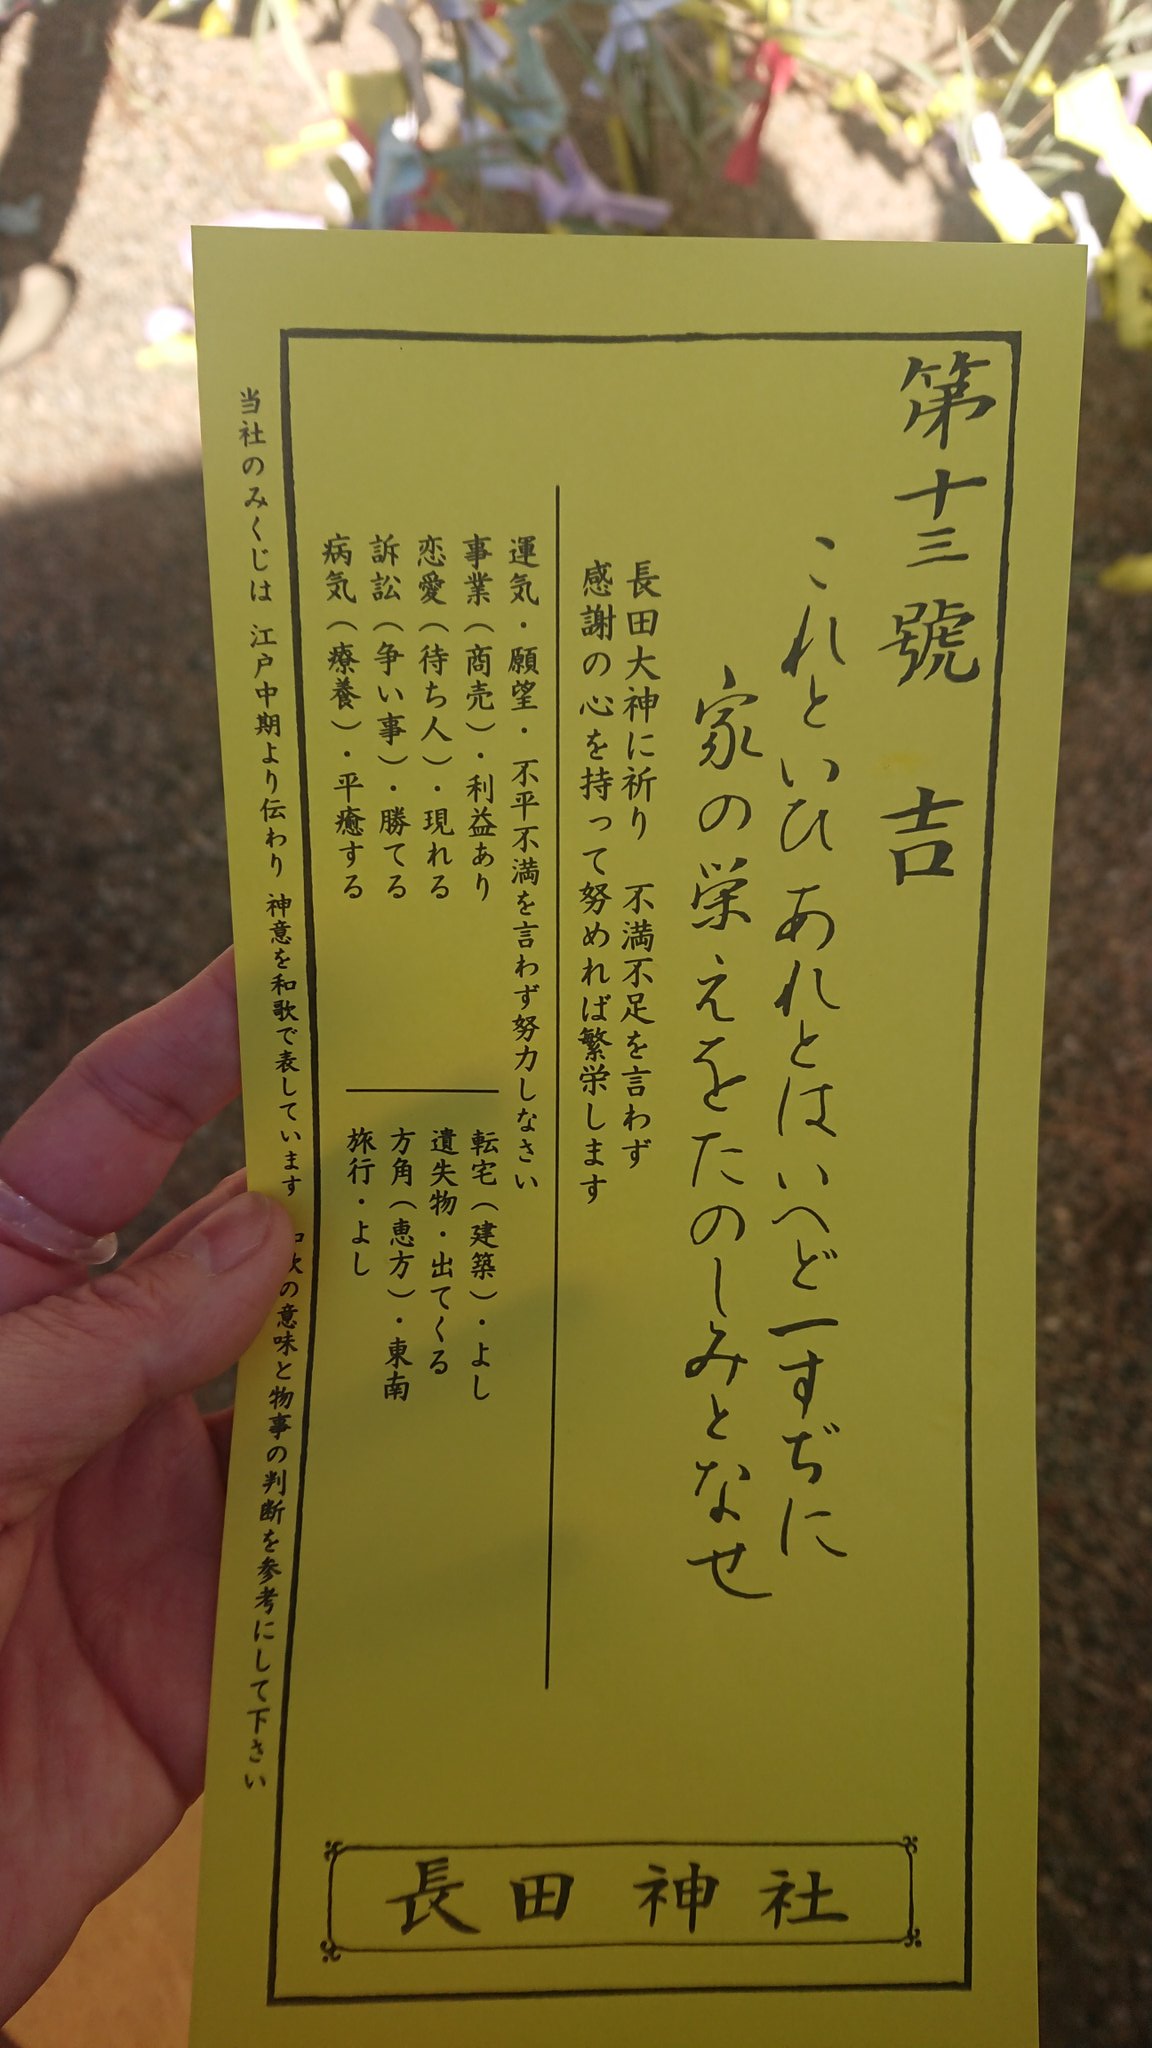 第十三號 吉
これといひ あれとはいへど一すぢに
家の栄えをたのしみとなせ
長田大神に祈り 不満不足を言わず
感謝の心を持って努めれば繁栄します
運気・願望・不平不満を言わず努力しなさい
事業(商売)・利益あり
恋愛(待ち人)・現れる
訴訟(争い事)・勝てる
病気(療養)・平癒する
転宅(建築)・よし
遺失物・出てくる
方角(恵方)・東南
旅行・よし
当社のみくじは 江戸中期より伝わり 神意を和歌で表しています 和歌の意味と物事の判断を参考にして下さい
長田神社